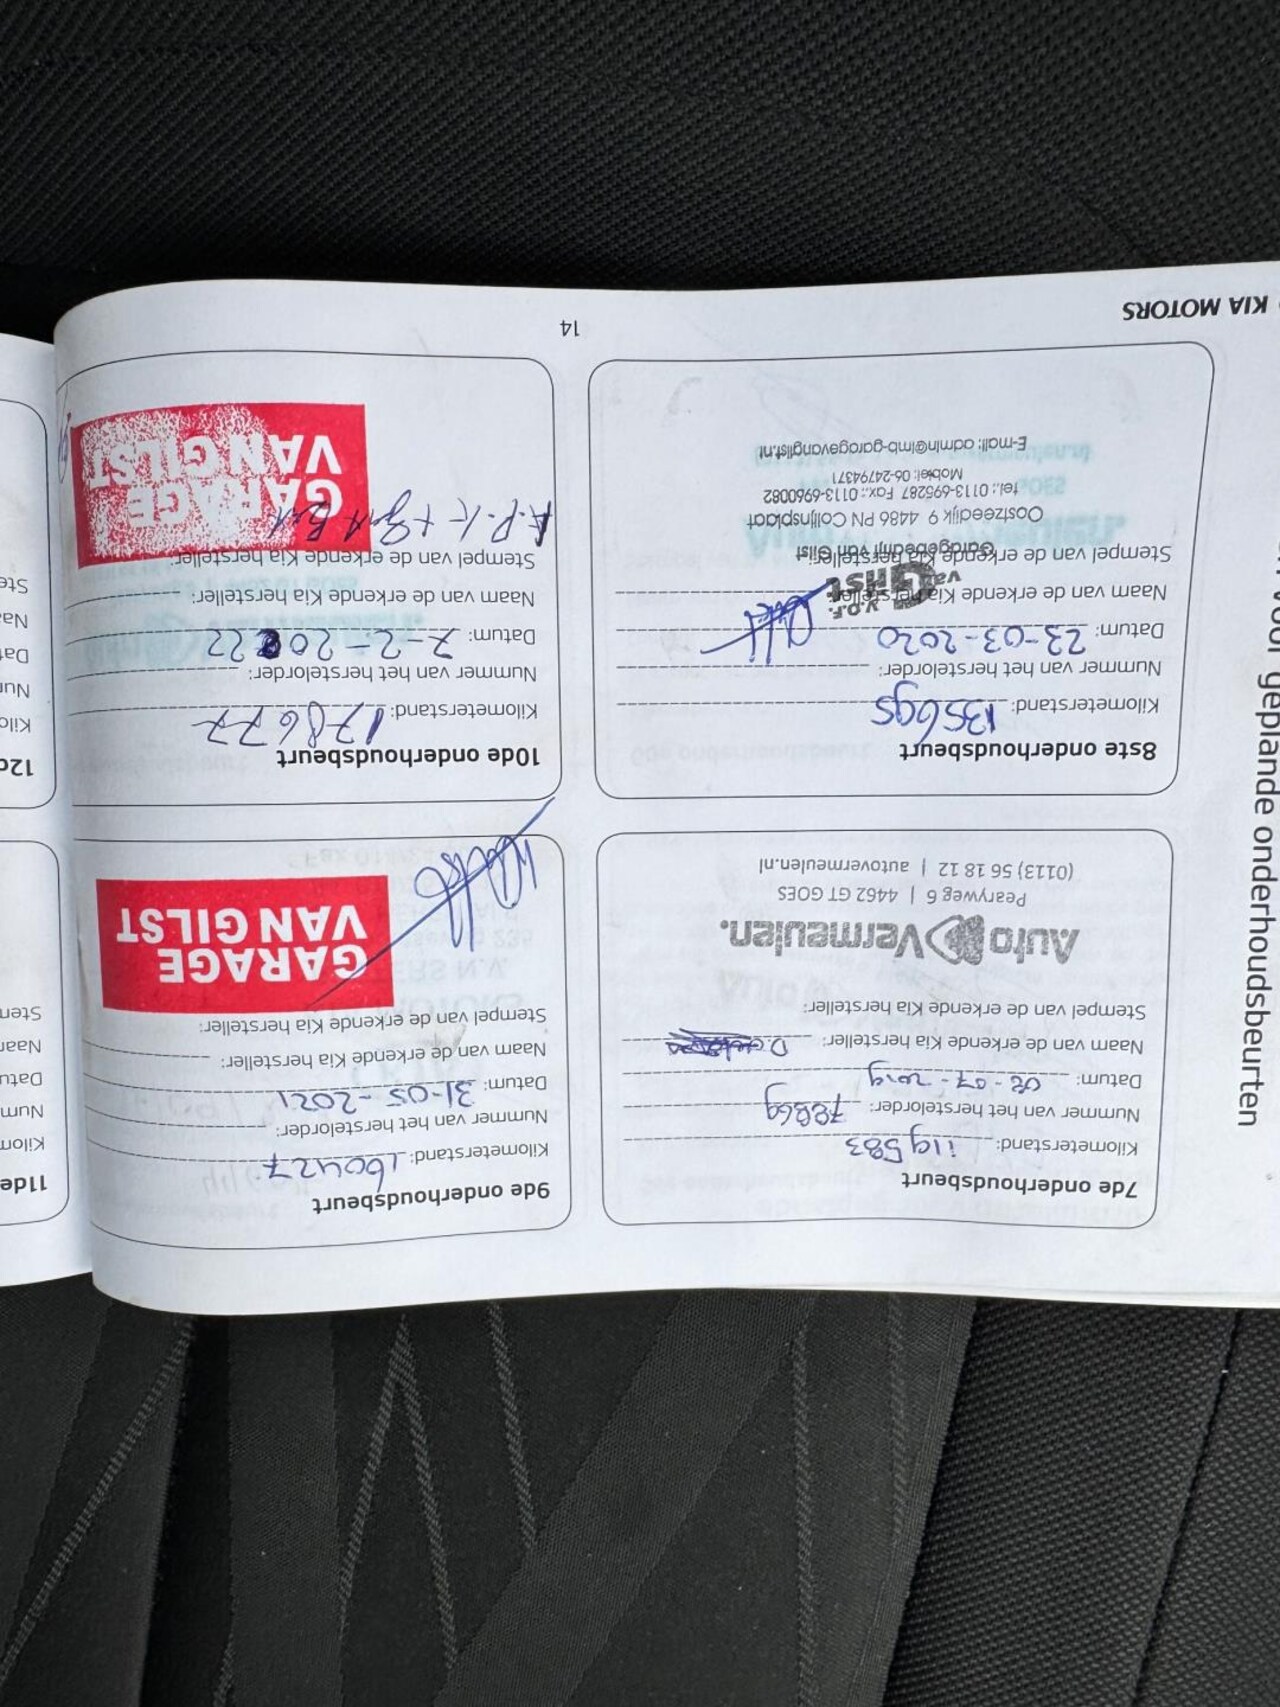 voor geplande onderhoudsbeurten
7de onderhoudsbeurt
Kilometerstand: 119583
Nummer van het herstelorder: 78869
Datum: 02-07-2019
Naam van de erkende Kia hersteller: D.
Stempel van de erkende Kia hersteller:
Auto Vermeulen.
Pearyweg 6 | 4462 GT GOES
(0113) 56 18 12 | autovermeulen.nl
8ste onderhoudsbeurt
Kilometerstand: 135695
Nummer van het herstelorder:
Datum: 23-03-2020
Naam van de erkende Kia hersteller:
Stempel van de erkende Kia hersteller:
v.o.f.
van Gilst
Garagebedrijf van Gilst
Oostzeedijk 9 4486 PN Colijnsplaat
tel.: 0113-695287 Fax.: 0113-6960082
Mobiel: 06-24794371
E-mail: admin@mb-garagevangilst.nl
9de onderhoudsbeurt
Kilometerstand: 160427
Nummer van het herstelorder:
Datum: 31-05-2021
Naam van de erkende Kia hersteller:
Stempel van de erkende Kia hersteller:
GARAGE
VAN GILST
10de onderhoudsbeurt
Kilometerstand: 178677
Nummer van het herstelorder:
Datum: 7-2-2022
Naam van de erkende Kia hersteller:
Stempel van de erkende Kia hersteller:
A.P.K + Grt Brt
GARAGE
VAN GILST
11de
Kilom
Num
Datu
Naar
Stem
12c
Kilo
Nur
Dat
Naa
Ste
KIA MOTORS
14